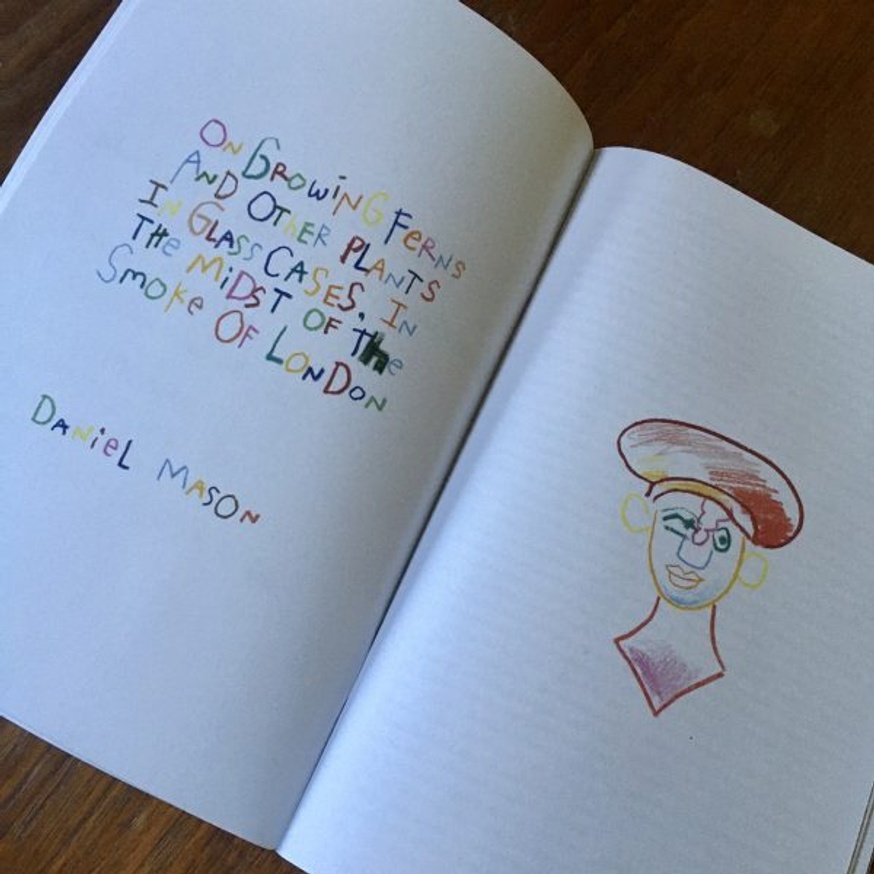 On Growing Ferns
And Other Plants
In Glass Cases, In
The Midst Of The
Smoke Of London
Daniel Mason